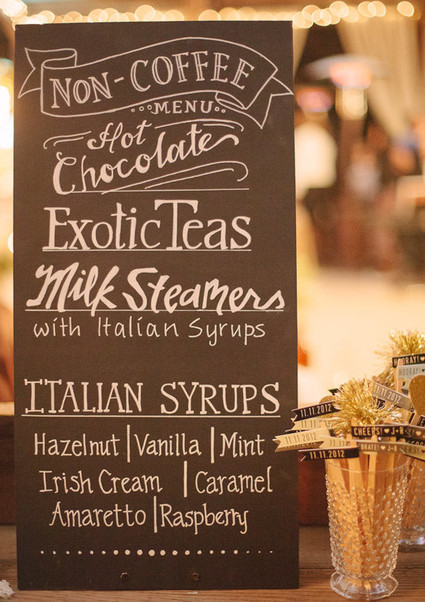 NON-COFFEE
MENU
Hot
Chocolate
Exotic Teas
Milk Steamers
with Italian Syrups
ITALIAN SYRUPS
Hazelnut | Vanilla | Mint
Irish Cream | Caramel
Amaretto | Raspberry
HOORAY!
11.11.2012
11.11.2012
CHEERS!
11.11.2012